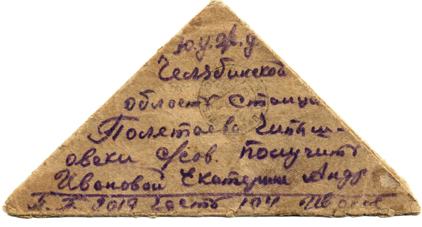 Ю.У.Ж.Д
Челябинской
область станция
Полетаево
овски с/сов. получить
Ивановой Екатерине Андр
П.П. 2019 часть 104